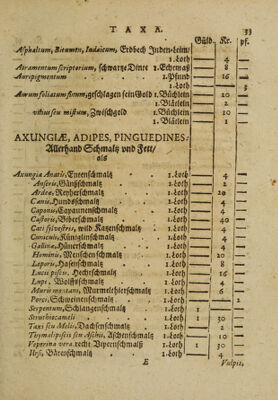 TAXA. 33
Güld. Kr. pf.
Asphaltum, Bitumen, Iudaicum, Erdbech Juden-Leim/
1. Loth — 4 —
Atramentum scriptorium, schwartze Dinte 1. Echtmaß — 8 —
Auripigmentum 1. Pfund — 16 —
1. Loth — 1 —
Aurum foliatum finum, geschlagen fein Gold 1. Büchlein — 20 —
1. Blätlein — 2 —
vitius seu mistum, Zwischgold 1. Büchlein — 10 —
1. Blätlein — 1 —
AXUNGIÆ, ADIPES, PINGUEDINES,
Allerhand Schmaltz vnd Fett/
als
Axungia Anatis, Entenschmaltz 1. Loth — 4 —
Anseris, Gänßschmaltz 1. Loth — 2 —
Ardeæ, Reyherschmaltz 1. Loth — 20 —
Canis, Hundsschmaltz 1. Loth — 4 —
Caponis, Capaunenschmaltz 1. Loth — 4 —
Castoris, Biberschmaltz 1. Loth — 40 —
Cati silvestris, wild Katzenschmaltz 1. Loth — 4 —
Cuniculi, Künglinschmaltz 1. Loth — 4 —
Gallinæ, Hünerschmaltz 1. Loth — 4 —
Hominis, Menschenschmaltz 1. Loth — 20 —
Leporis, Hasenschmaltz 1. Loth — 8 —
Lucii piscis, Hechtschmaltz 1. Loth — 16 —
Lupi, Wolffsschmaltz 1. Loth — 4 —
Muris montani, Murmelthierschmaltz 1. Loth — 4 —
Porci, Schweinenschmaltz 1. Loth — — —
Serpentum, Schlangenschmaltz 1. Loth — 30 —
Struthiocameli 1. Loth 1 — —
Taxi seu Melis, Dachsenschmaltz 1. Loth — 2 —
Thymalli piscis seu Aschiæ, Aschenschmaltz 1. Loth — 30 —
Viperina vera, recht Vipernschmaltz 1. Loth 1 30 —
Ursi, Bärenschmaltz 1. Loth — 4 —
E Vulpis,